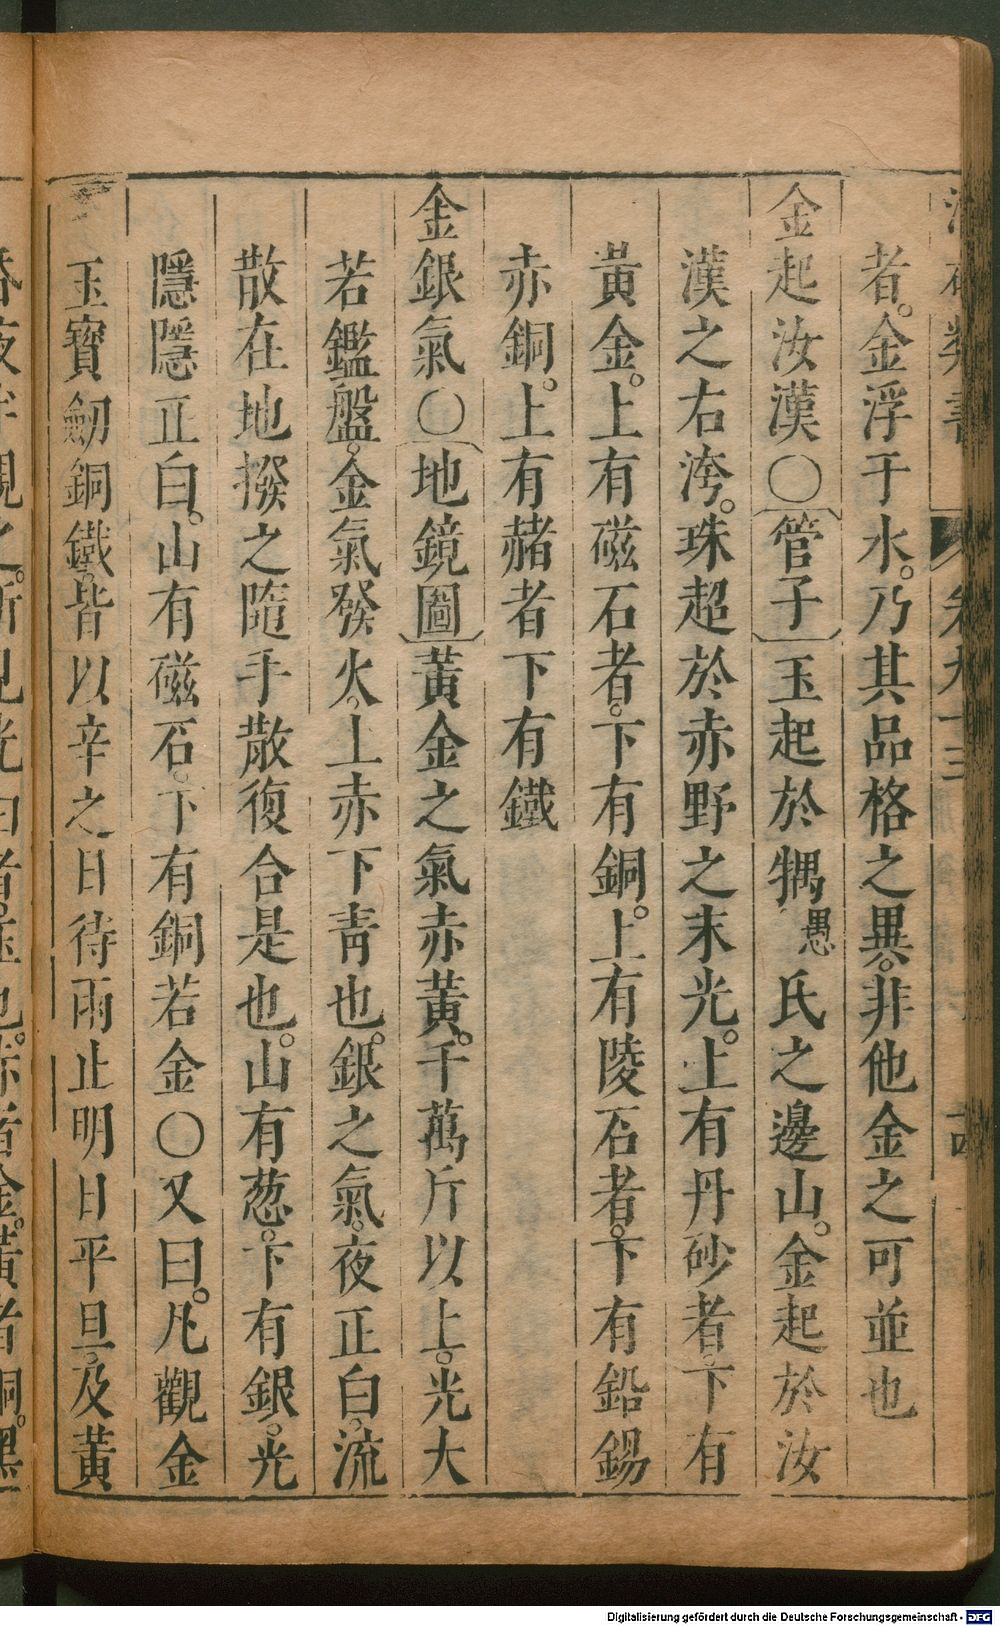 者。金浮于水。乃其品格之異。非他金之可並也
金起汝漢〇〔管子〕玉起於㺄愚氏之邊山。金起於汝
漢之右洿。珠超於赤野之末光。上有丹砂者。下有
黃金。上有磁石者。下有銅。上有陵石者。下有鉛錫
赤銅。上有赭者下有鐵
金銀氣〇〔地鏡圖〕黃金之氣赤黃。千萬斤以上。光大
若鑑盤。金氣發火。上赤下青也。銀之氣。夜正白。流
散在地撥之隨手散復合是也。山有葱。下有銀。光
隱隱正白。山有磁石。下有銅若金〇又曰。凡觀金
玉寶劒銅鐵。皆以辛之日待雨止明日平旦。及黃
Digitalisierung gefördert durch die Deutsche Forschungsgemeinschaft - DFG